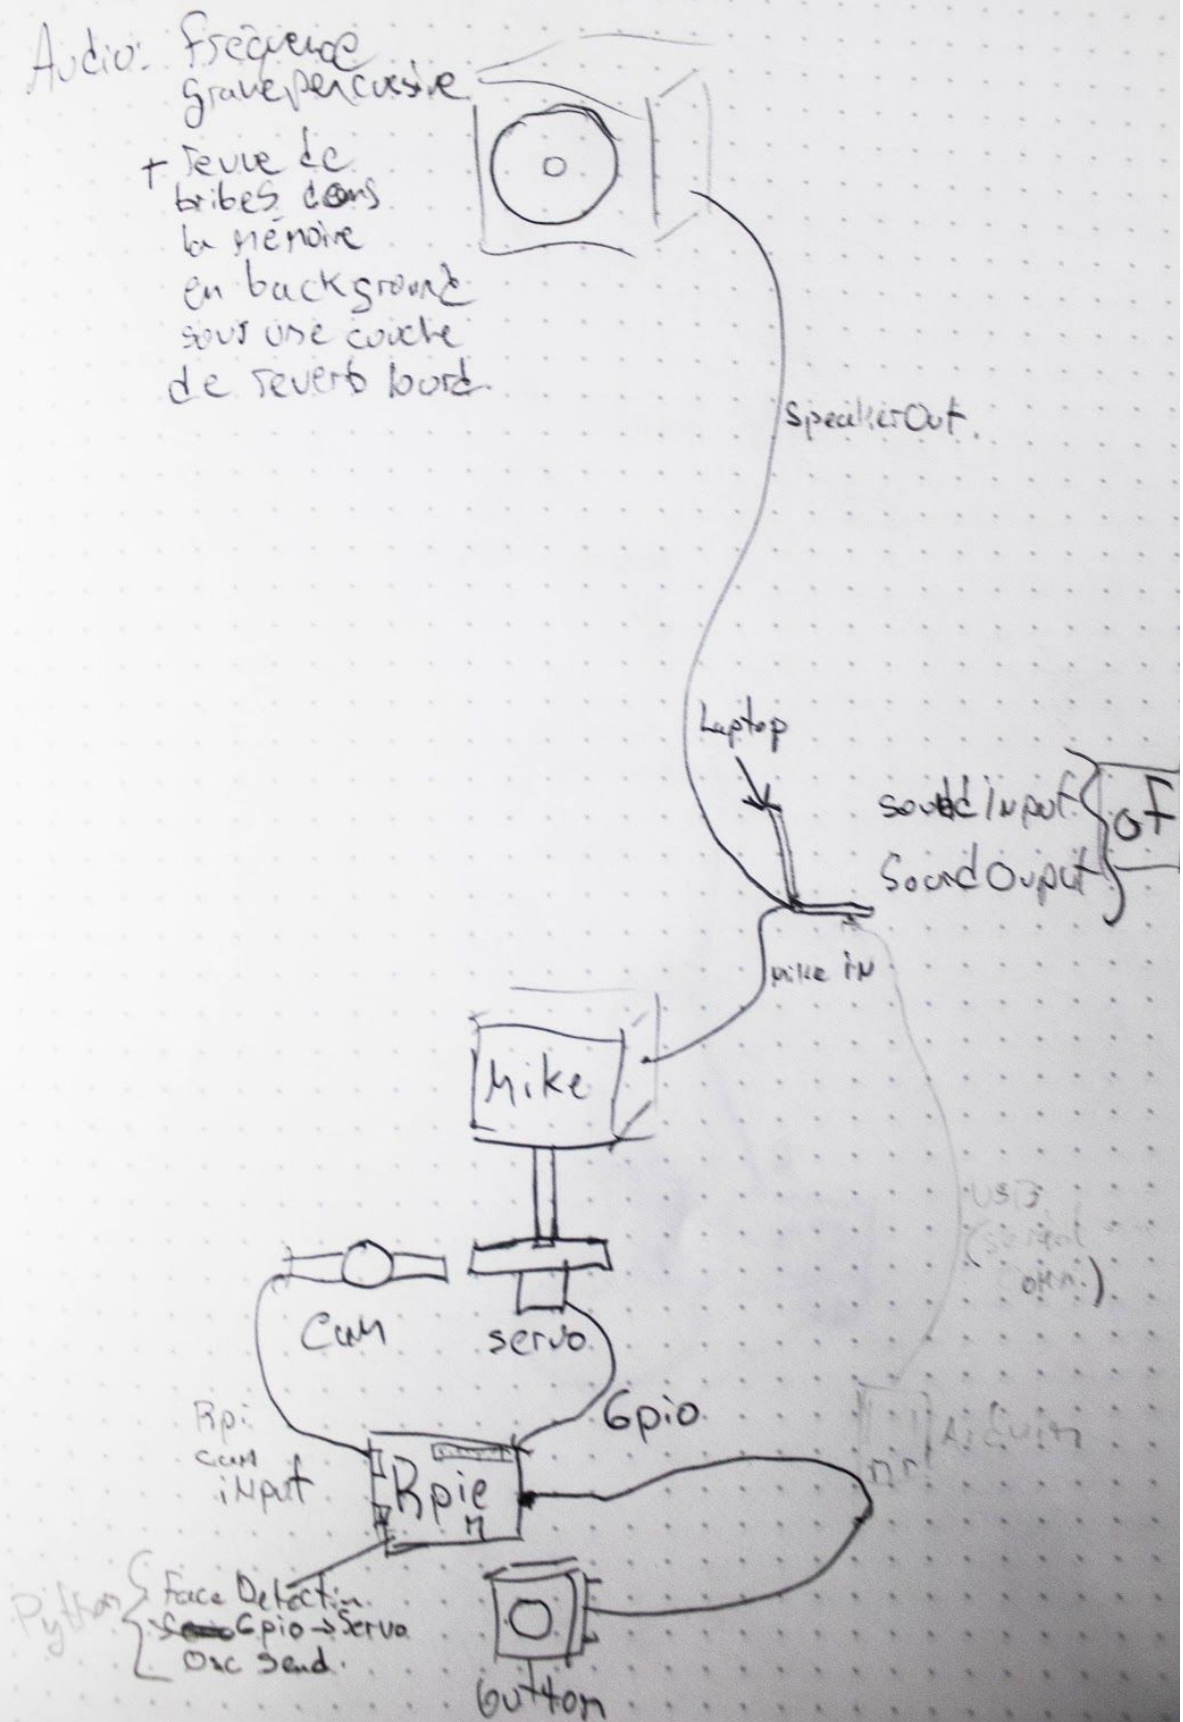 Audio: Fréquence
grave percussive
+ revue de
bribes dans
la mémoire
en background
sous une couche
de reverb lourd.
SpeakerOut.
Laptop
sound input
Sound Ouput
oF
Mike in
Mike
USB
(serial
Cam
servo
Gpio
Rpi
cam
input
Rpie
Arduin
Python
Face Detectin
Gpio → Servo
Osc Send.
button